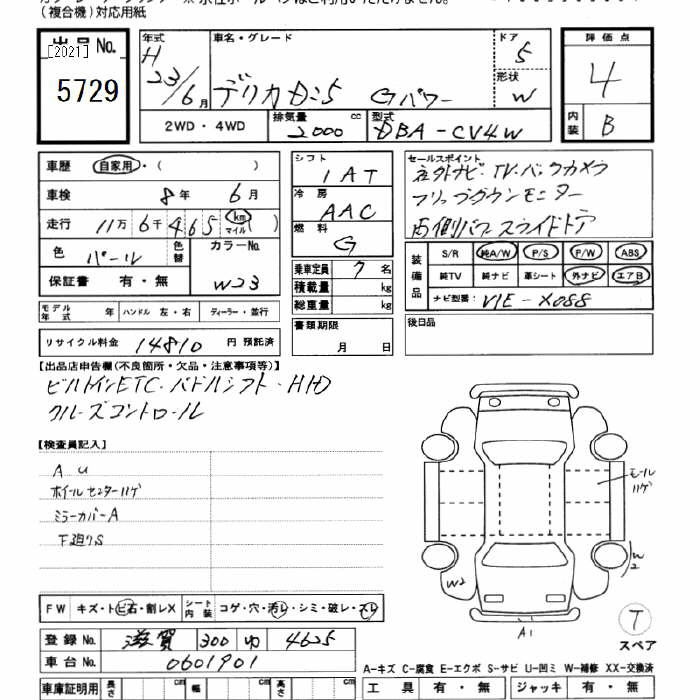 (複合機)対応用紙
出品No.
[2021]
5729
年式 H 23/6月
車名・グレード デリカD:5 Gパワー
ドア 5
形状 W
評価点 4
内装 B
2WD・4WD
排気量 2000 cc
型式 DBA-CV4W
車歴 自家用・( )
車検 8年 6月
走行 11万6千465 (km マイル)
色 パール 色替
カラーNo. W23
保証書 有・無
シフト IAT
冷房 AAC
燃料 G
乗車定員 7名
積載量 kg
総重量 kg
書類期限 月 日
セールスポイント
社外ナビ・TV・バックカメラ
フリップダウンモニター
両側パワースライドドア
装備品
S/R 純A/W P/S P/W ABS
純TV 純ナビ 革シート 外ナビ エアB
ナビ型番: VIE-X088
後日品
モデル年式 年 ハンドル 左・右 ディーラー・並行
リサイクル料金 14810 円 預託済
【出品店申告欄(不良箇所・欠品・注意事項等)】
ビルトインETC・パドルシフト・HID
クルーズコントロール
【検査員記入】
A U
ホイールセンターハゲ
ミラーカバーA
下廻りS
モール
ハゲ
W2
W2
A1
T
スペア
FW キズ・トビ石・割レX
シート内装 コゲ・穴・汚レ・シミ・破レ・スレ
登録No. 滋賀 300 4625
車台No. 0601901
A-キズ C-腐食 E-エクボ S-サビ U-凹ミ W-補修 XX-交換済
車庫証明用 長さ cm 幅 cm 高さ cm
工具 有・無 ジャッキ 有・無